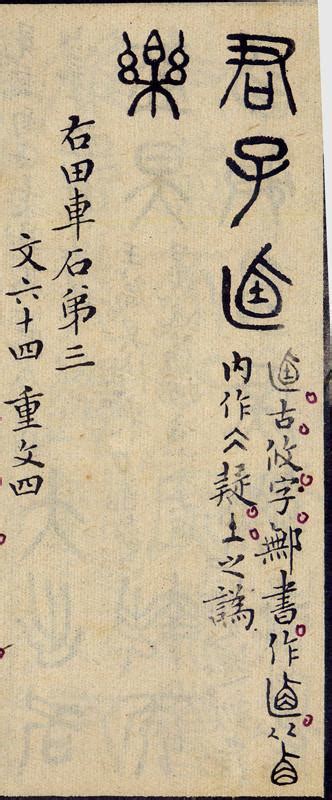 君子逌
逌古攸字鄦書作逌从
内作仌疑土之譌
樂
右田車石第三
文六十四 重文四